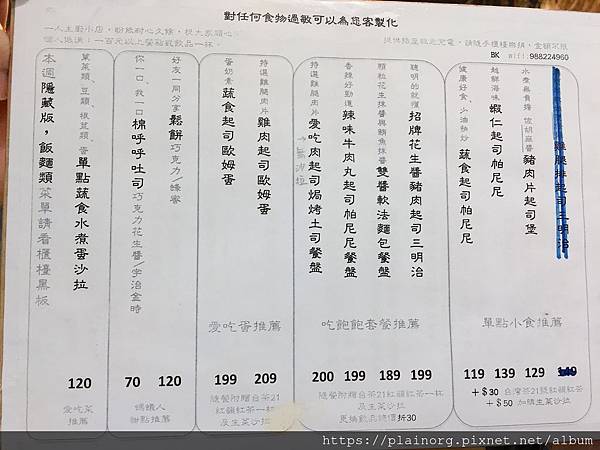 對任何食物過敏可以為您客製化
一人主廚小店，盼能耐心久候，祝大家順心
個人低消：一百元以上餐點或飲品一杯。
BK wifi:988224960
水煮無負擔 豬肉片起司堡
129
越鮮海味 蝦仁起司帕尼尼
139
健康好食、少油勢妙 蔬食起司帕尼尼
119
單點小食推薦
+$30 台灣茶21號紅韻紅茶
+$50 加購生菜沙拉
聰明的說服 招牌花生醬豬肉起司三明治
199
顆粒花生抹醬與鮪魚抹醬 雙醬軟法麵包餐盤
189
香辣好勁道 辣味牛肉丸起司帕尼尼餐盤
199
特選雞腿肉片 愛吃肉起司焗烤土司餐盤
200
吃飽飽套餐推薦
隨餐附贈台茶21紅韻紅茶一杯
及生菜沙拉
更換飲品總價折30
特選雞腿肉片 雞肉起司歐姆蛋
209
蛋奶素 蔬食起司歐姆蛋
199
愛吃蛋推薦
隨餐附贈台茶21
紅韻紅茶一杯
及生菜沙拉
好友一同分享 鬆餅 巧克力/蜂蜜
120
你一口、我一口 棉呼呼吐司 巧克力花生醬/宇治金時
70
螞蟻人
甜點推薦
葉菜類、豆類、根莖類、蛋 單點蔬食水煮蛋沙拉
120
愛吃菜
推薦
本週隱藏版，飯麵類菜單請看櫃檯黑板
https://plainorg.pixnet.net/album